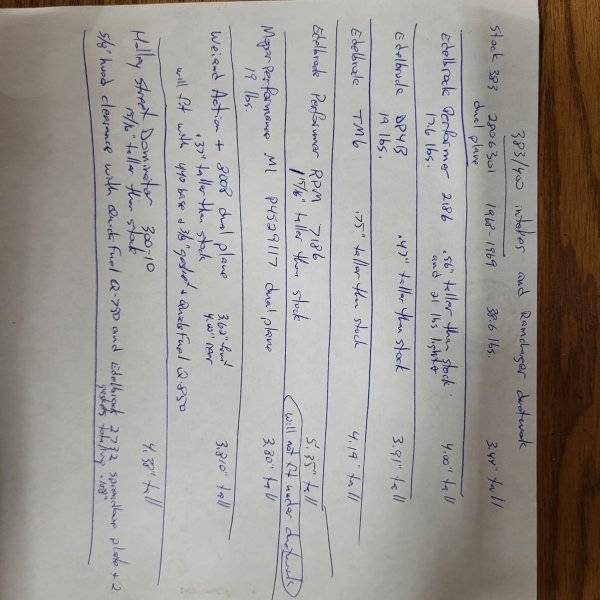 383/400 intakes and Ramcharger ductwork
Stock 383 2806301 1968-1969 38.6 lbs. 3.44" tall
dual plane
Edelbrock Performer 2186 .56" taller than stock 4.00" tall
17.6 lbs. and 21 lbs lighter
Edelbrock DP4B .47" taller than stock 3.91" tall
19 lbs.
Edelbrock TM6 .75" taller than stock 4.19" tall
Edelbrock Performer RPM 7186 5.35" tall
15/16" taller than stock will not fit under ductwork
Mopar Performance M1 P4529117 dual plane 3.80" tall
19 lbs.
Weiand Action + 8008 dual plane 3.62" front 3.810" tall
.37" taller than stock 4.00" rear
will fit with 440 base + 3/8" gasket + Quick Fuel Q-850
Holley Street Dominator 300-10 4.38" tall
15/16" taller than stock
5/8" hood clearance with Quick Fuel Q-750 and Edelbrock 2732 spreadbore plate + 2
gaskets totaling .108"